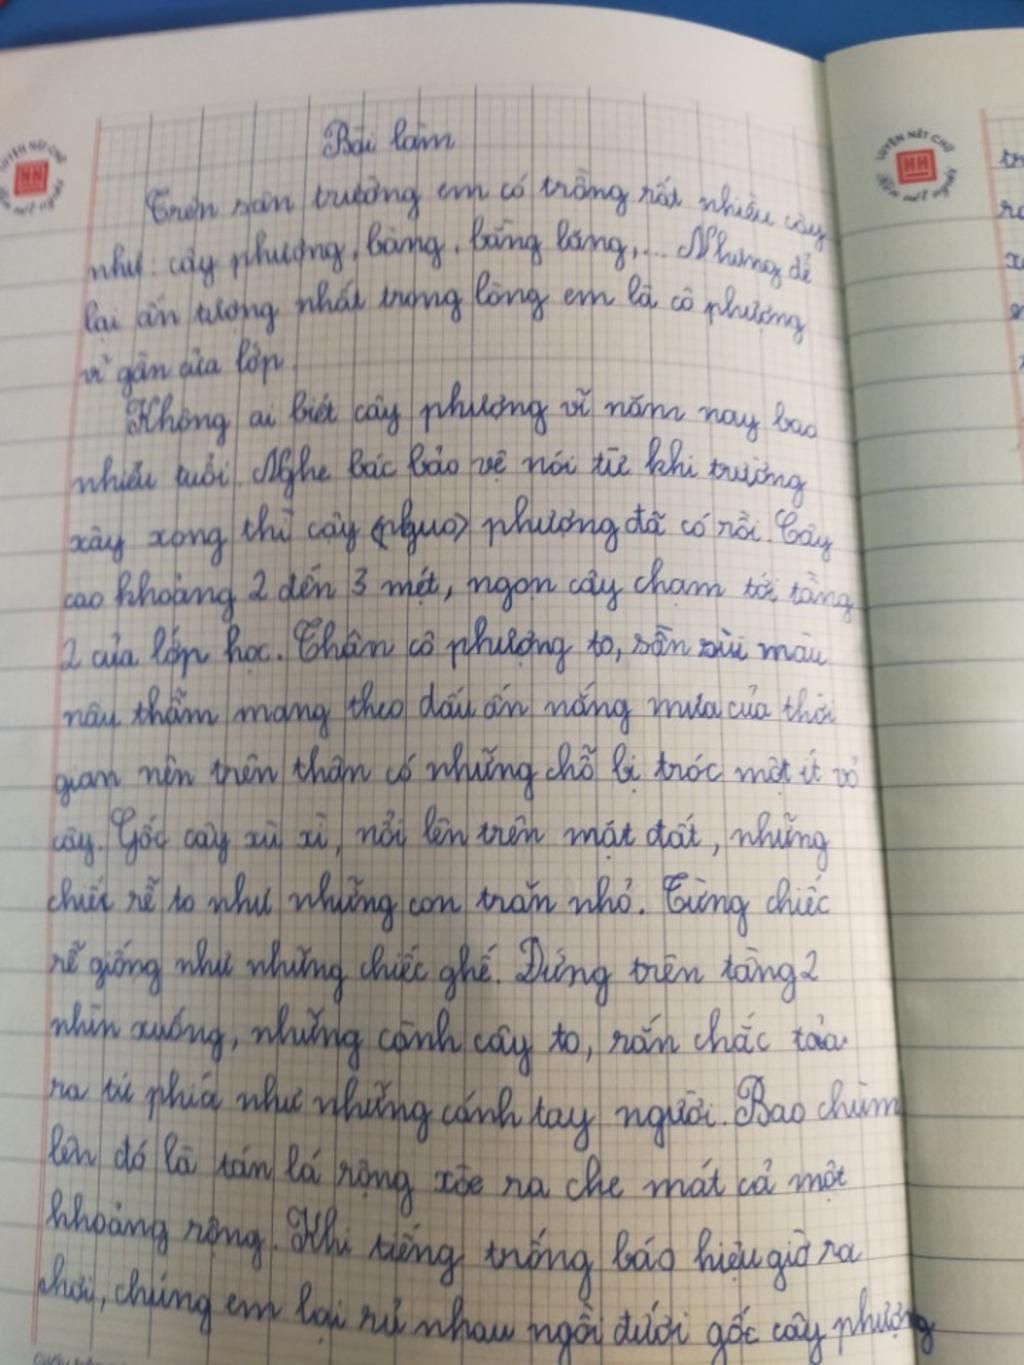 Bài làm
Trên sân trường em có trồng rất nhiều cây
như: cây phượng, bàng, bằng lăng,... Nhưng để
lại ấn tượng nhất trong lòng em là cô phượng
vì gần cửa lớp.
Không ai biết cây phượng vĩ năm nay bao
nhiêu tuổi. Nghe bác bảo vệ nói từ khi trường
xây xong thì cây (phguo) phượng đã có rồi. Cây
cao khoảng 2 đến 3 mét, ngọn cây chạm tới tầng
2 của lớp học. Thân cô phượng to, sần sùi màu
nâu thẫm mang theo dấu ấn nắng mưa của thời
gian nên trên thân có những chỗ bị tróc một ít vỏ
cây. Gốc cây xù xì, nổi lên trên mặt đất, những
chiếc rễ to như những con trăn nhỏ. Từng chiếc
rễ giống như những chiếc ghế. Đứng trên tầng 2
nhìn xuống, những cành cây to, rắn chắc tỏa
ra tứ phía như những cánh tay người. Bao chùm
lên đó là tán lá rộng xòe ra che mát cả một
khoảng rộng. Khi tiếng trống báo hiệu giờ ra
chơi, chúng em lại rủ nhau ngồi dưới gốc cây phượng
LUYỆN NÉT CHỮ
HH
LUYỆN NÉT CHỮ
HH